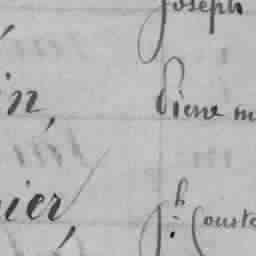 Joseph
in, Pierre m
ier, jh Couste